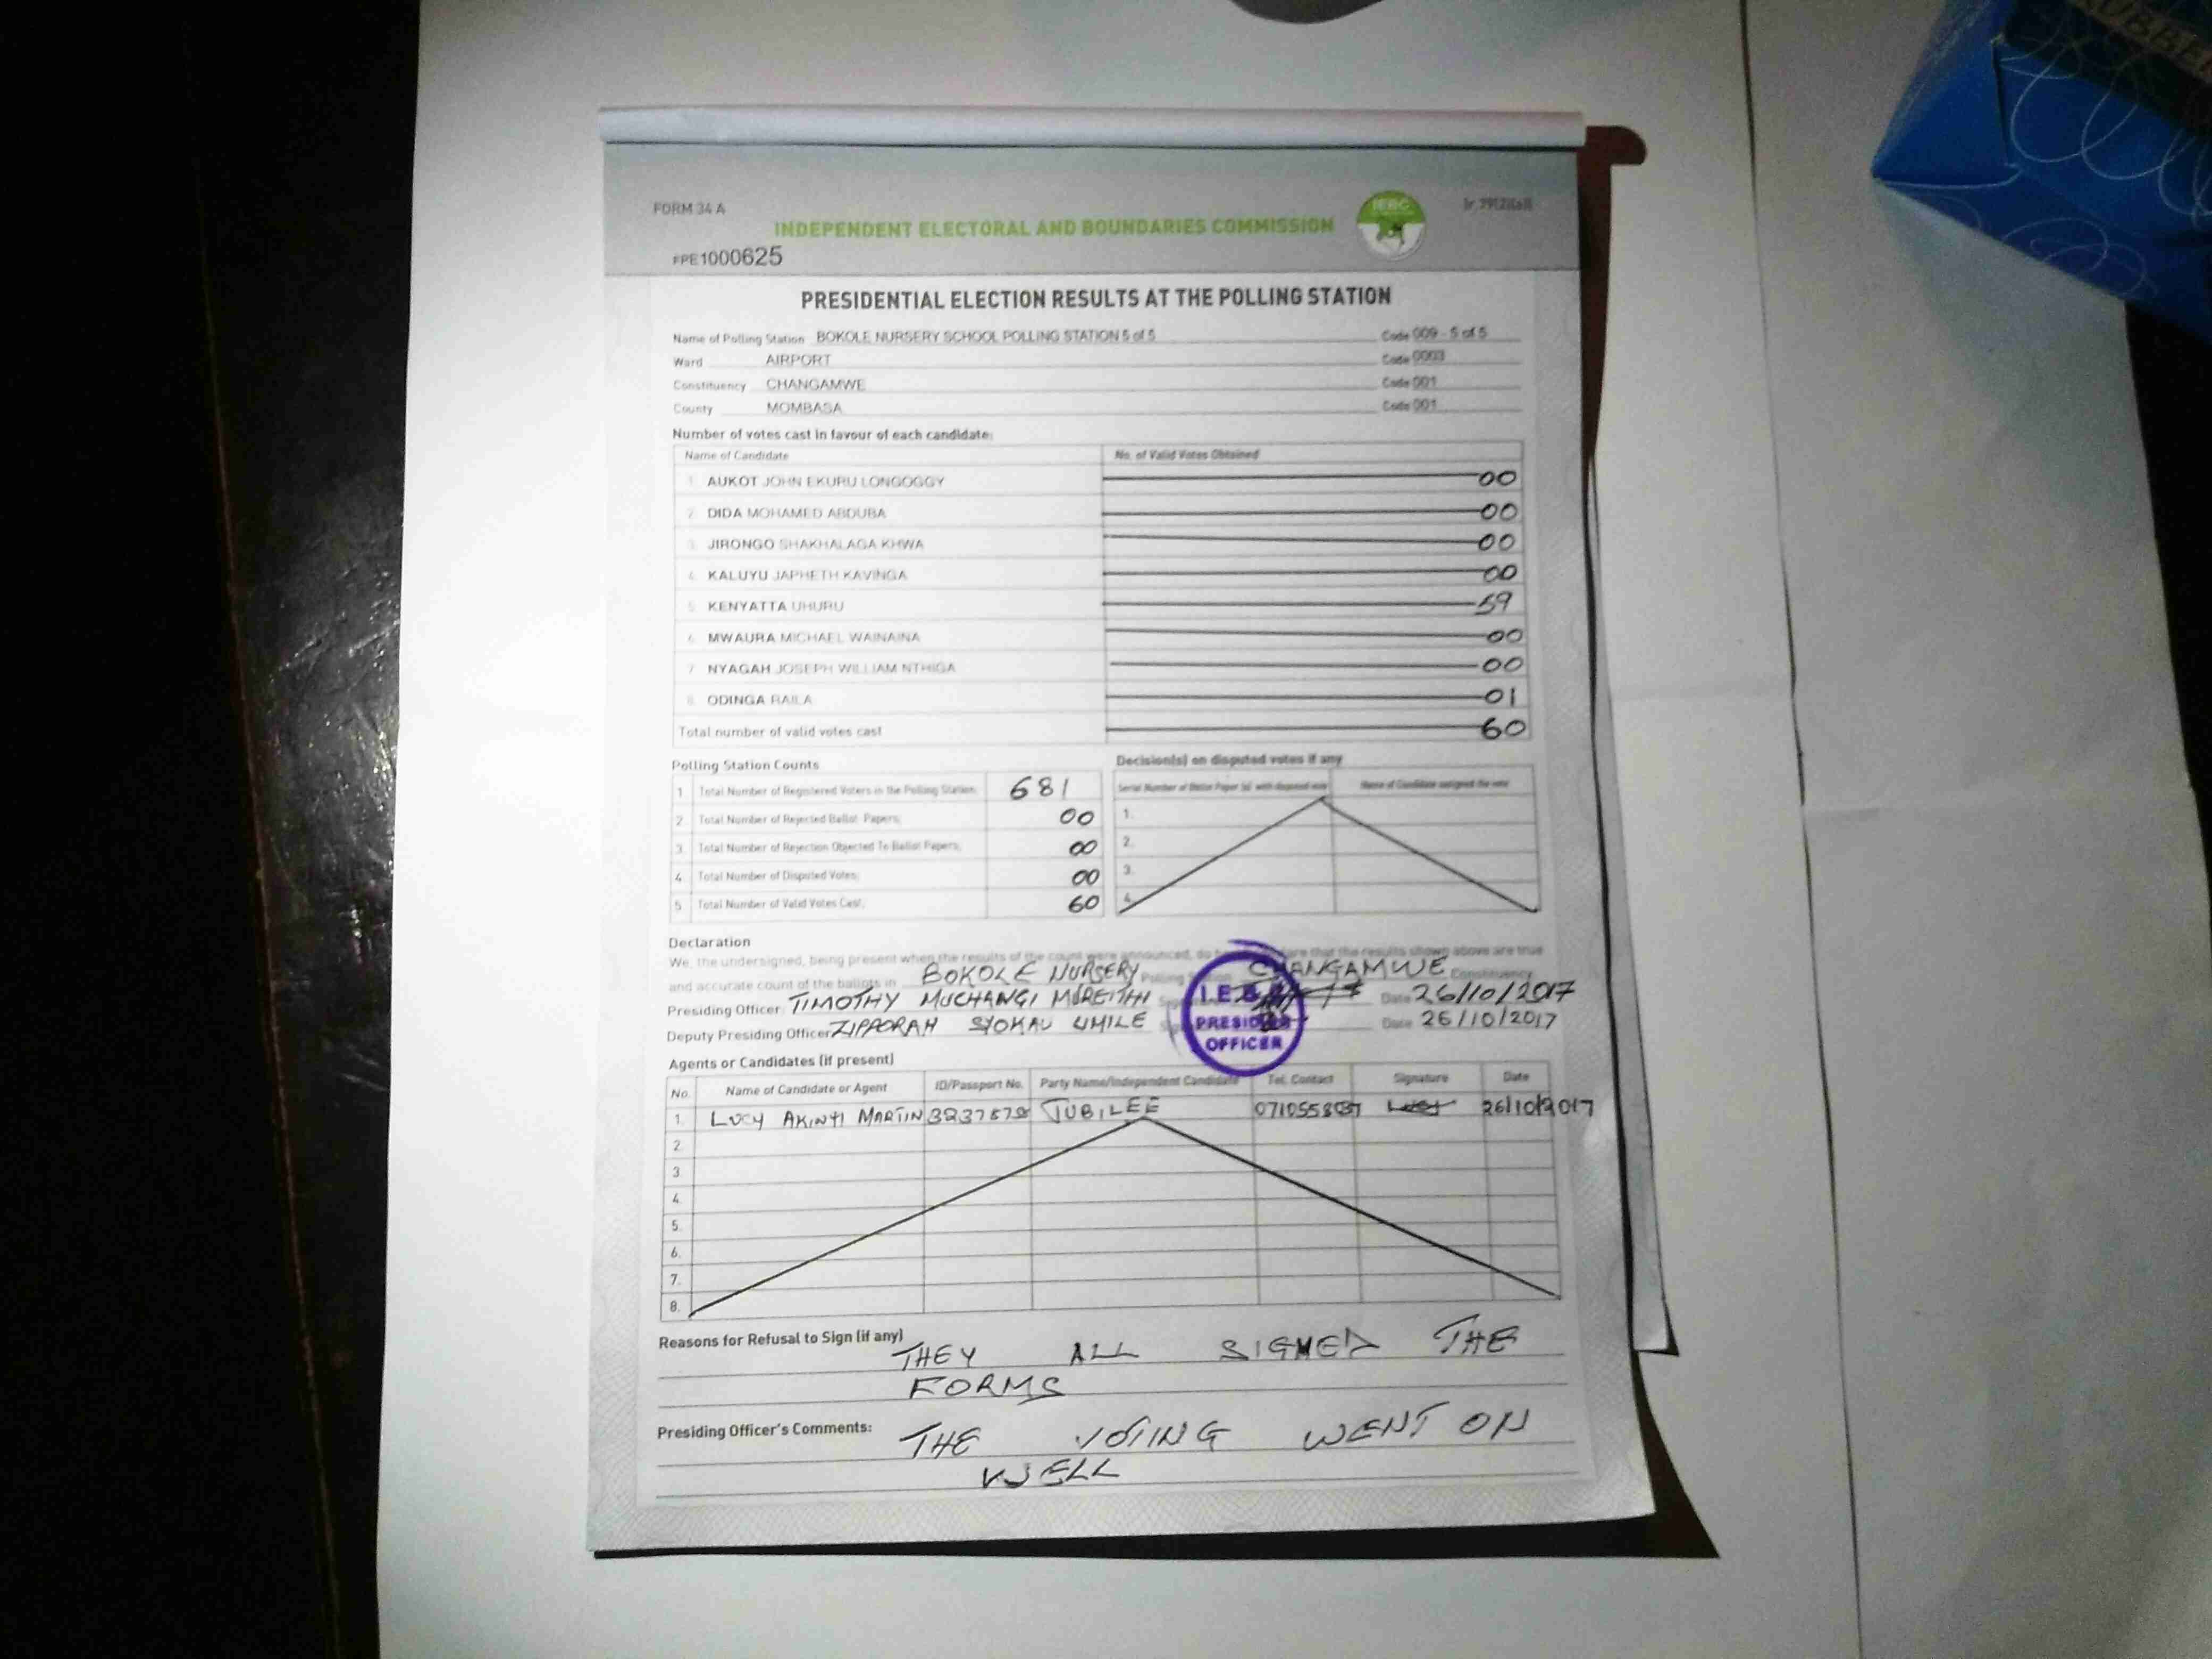 FORM 34 A
INDEPENDENT ELECTORAL AND BOUNDARIES COMMISSION
IEBC
FPE1000625
PRESIDENTIAL ELECTION RESULTS AT THE POLLING STATION
Name of Polling Station BOKOLE NURSERY SCHOOL POLLING STATION 5 of 5 Code 009 - 5 of 5
Ward AIRPORT Code 0003
Constituency CHANGAMWE Code 001
County MOMBASA Code 001
Number of votes cast in favour of each candidate:
Name of Candidate No. of Valid Votes Obtained
1 AUKOT JOHN EKURU LONGOGGY 00
2 DIDA MOHAMED ABDUBA 00
3 JIRONGO SHAKHALAGA KHWA 00
4 KALUYU JAPHETH KAVINGA 00
5 KENYATTA UHURU 59
6 MWAURA MICHAEL WAINAINA 00
7 NYAGAH JOSEPH WILLIAM NTHIGA 00
8 ODINGA RAILA 01
Total number of valid votes cast 60
Polling Station Counts
1 Total Number of Registered Voters in the Polling Station: 681
2 Total Number of Rejected Ballot Papers; 00
3 Total Number of Rejection Objected To Ballot Papers; 00
4 Total Number of Disputed Votes; 00
5 Total Number of Valid Votes Cast; 60
Decision(s) on disputed votes if any
Serial Number of Ballot Paper (s) with disputed vote Name of Candidate assigned the vote
1.
2.
3.
4.
Declaration
We, the undersigned, being present when the results of the count were announced, do that the results shown above are true
and accurate count of the ballots in BOKOLE NURSERY Polling CHANGAMWE Constituency
Presiding Officer: TIMOTHY MUCHANGI MUREITHI Date 26/10/2017
Deputy Presiding Officer ZIPPORAH SYOKAU UMILE Date 26/10/2017
I.E.B.
PRESIDING
OFFICER
Agents or Candidates (if present)
No. Name of Candidate or Agent ID/Passport No. Party Name/Independent Candidate Tel. Contact Signature Date
1. LUCY AKINYI MARTIN JUBILEE 26/10/2017
2.
3.
4.
5.
6.
7.
8.
Reasons for Refusal to Sign (if any) THEY ALL SIGNED THE
FORMS
Presiding Officer's Comments: THE VOTING WENT ON
WELL